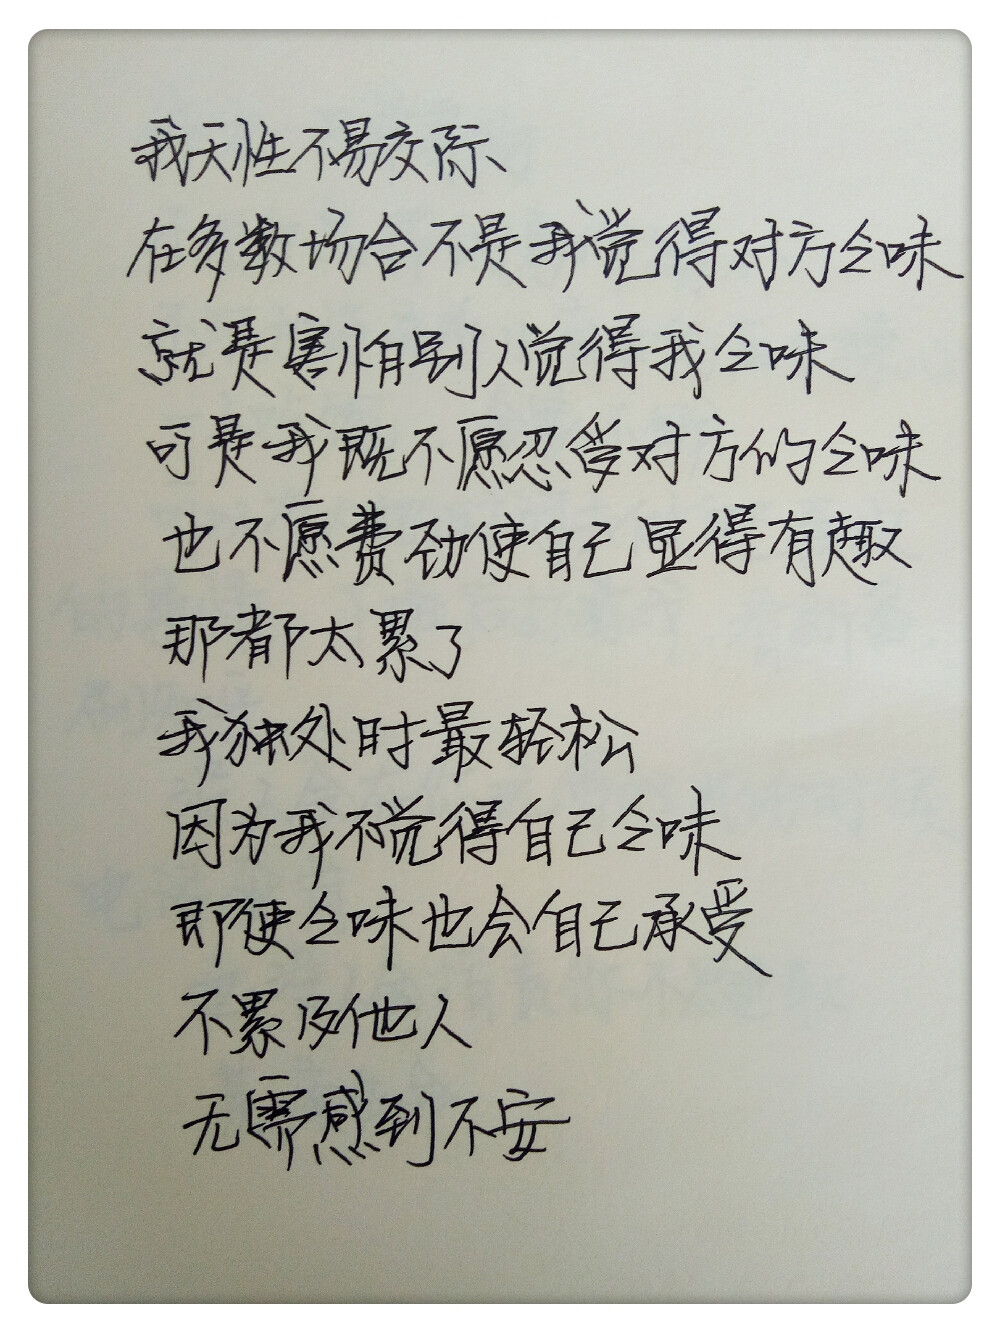 我天性不易交际、
在多数场合不是我觉得对方乏味
就是害怕别人觉得我乏味
可是我既不愿忍受对方的乏味
也不愿费劲使自己显得有趣
那都太累了
我独处时最轻松
因为我不觉得自己乏味
即使乏味也会自己承受
不累及他人
无需感到不安